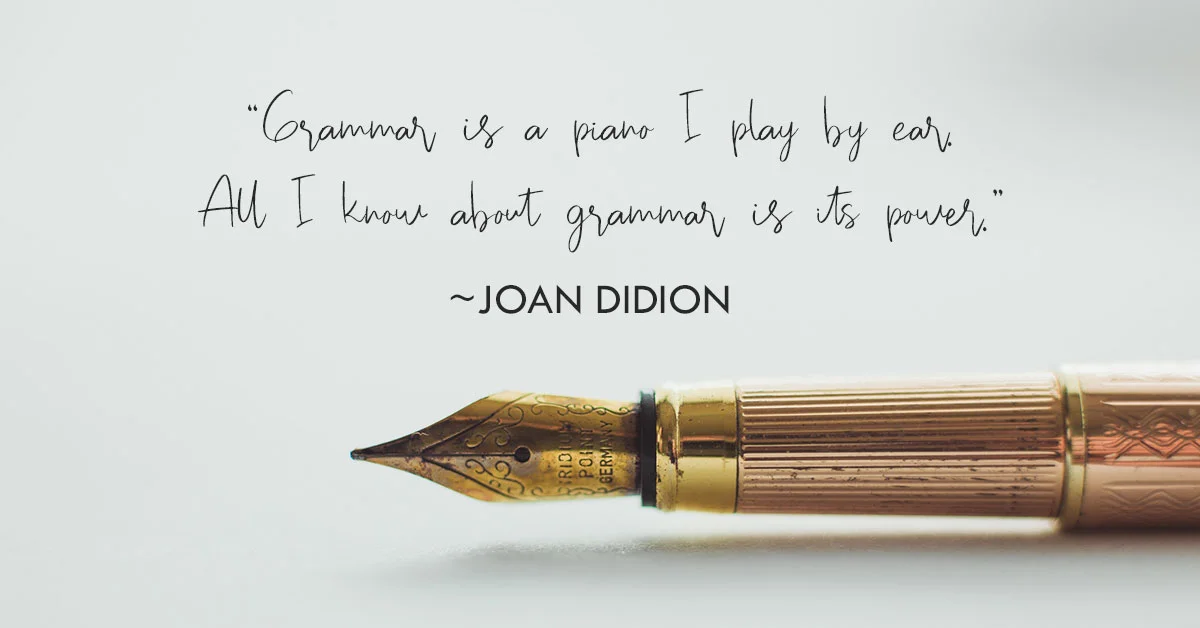 “Grammar is a piano I play by ear.
All I know about grammar is its power.”
~JOAN DIDION
IRIDIUM
POINT
GERMANY